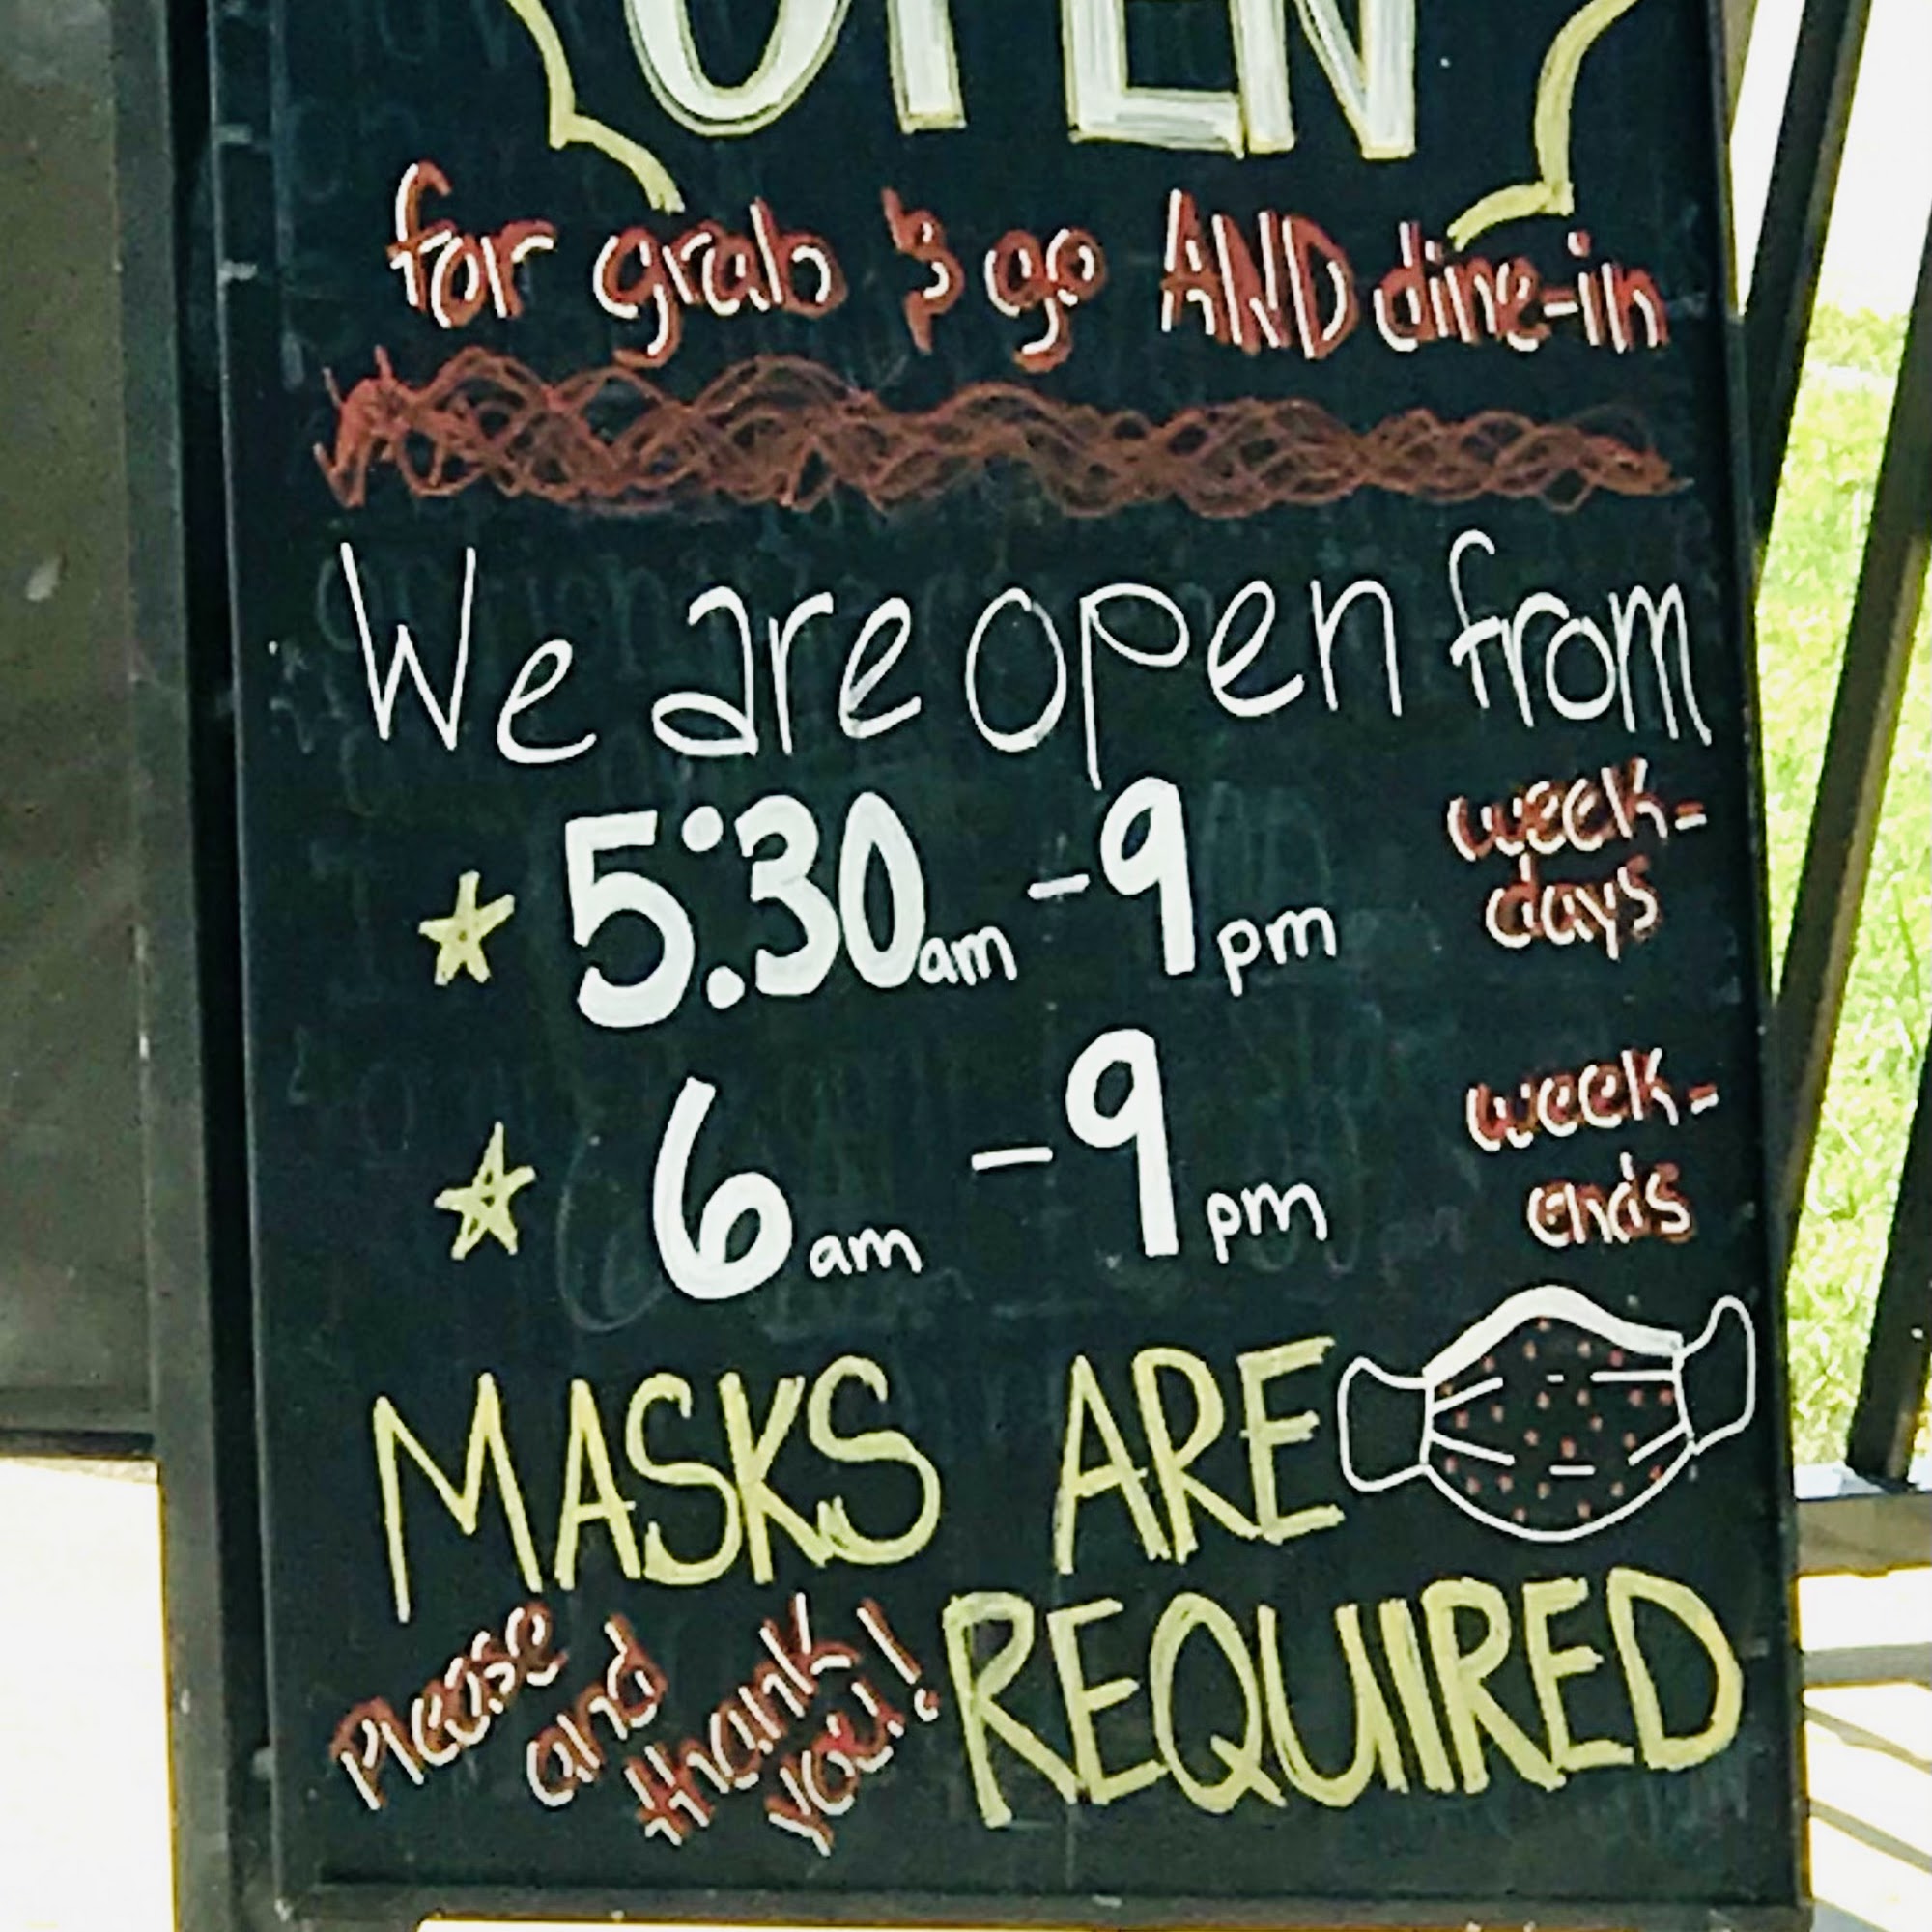 OPEN
for grab & go AND dine-in
We are open from
5:30am - 9pm week-
days
6am - 9pm week-
ends
MASKS ARE
REQUIRED
Please
and
thank
you!